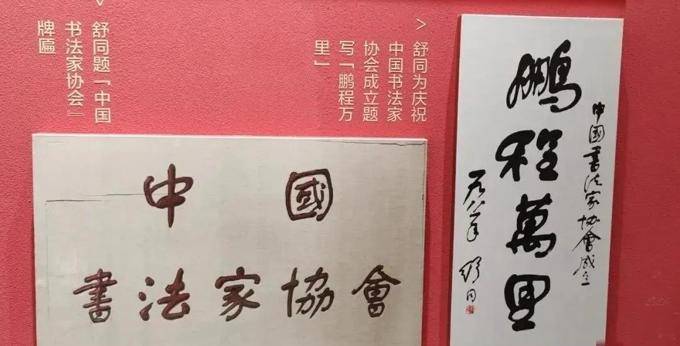 舒同题「中国
书法家协会』
牌匾
舒同为庆祝
中国书法家
协会成立题
写「鹏程万
里」
中國
書法家協會
中国書法家协會成立
鵬程萬里
一九八一年 舒同